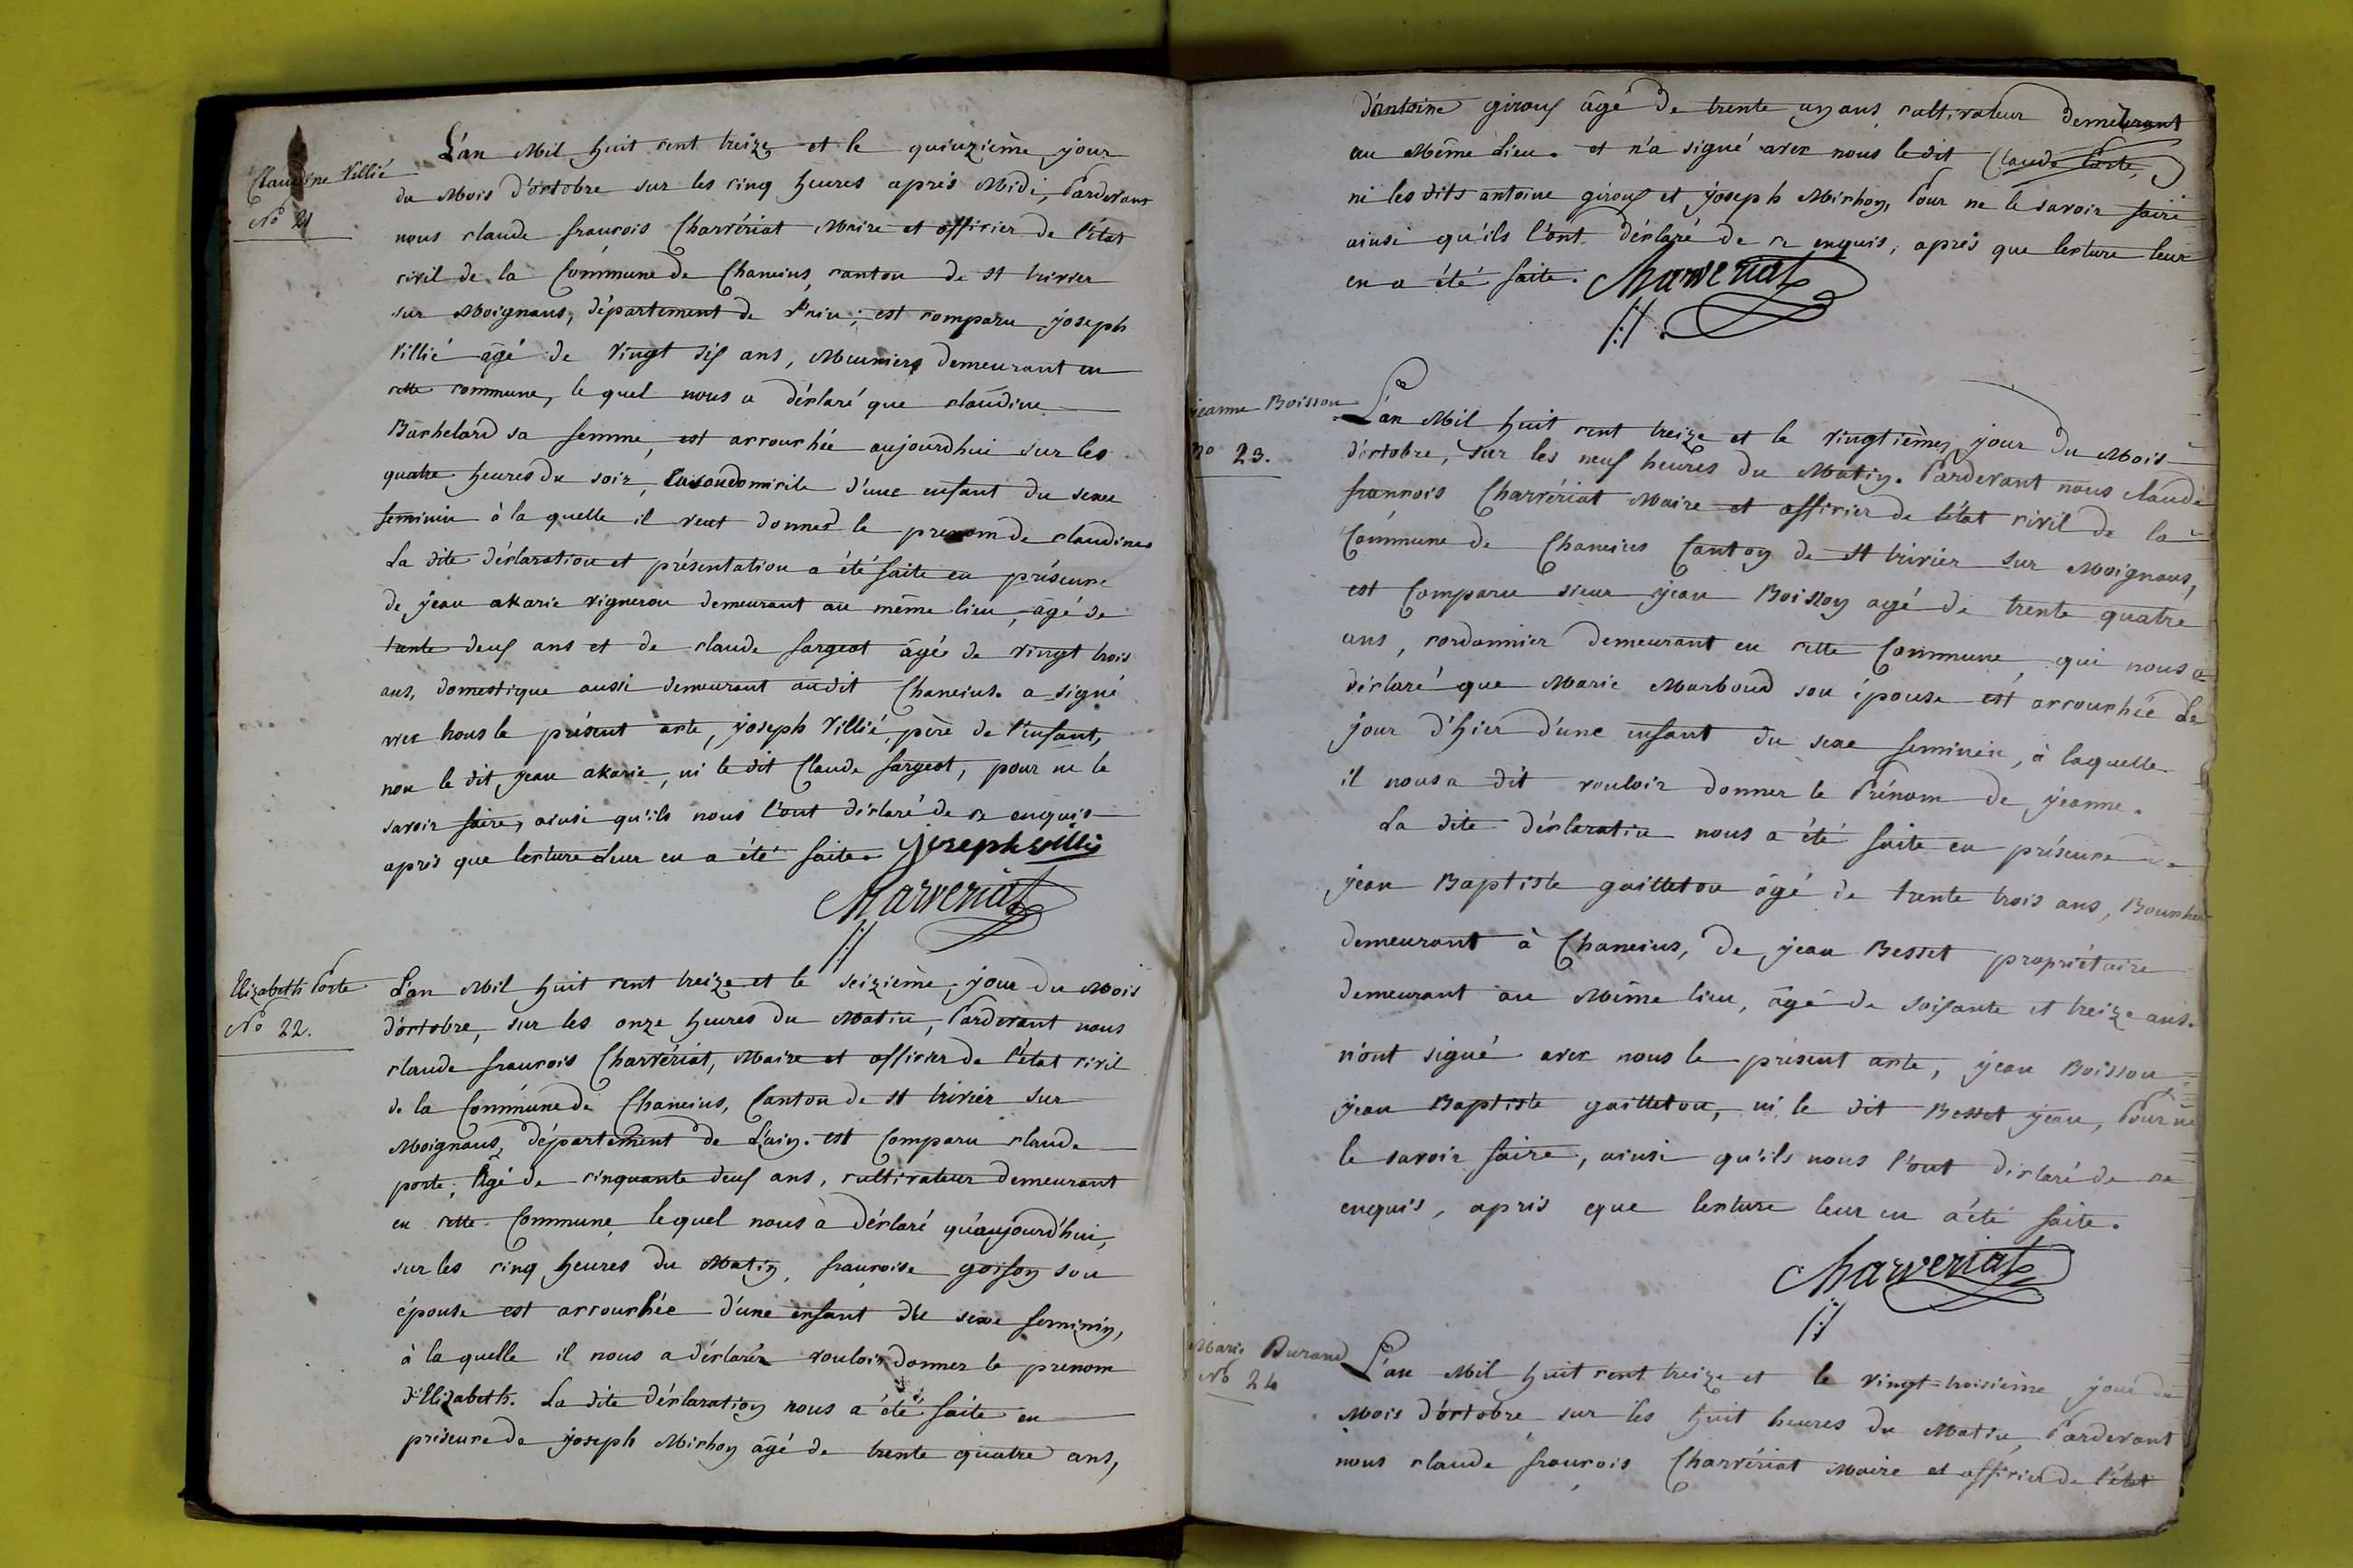 Claudine Villié
No 21
L'an Mil huit cent treize et le quinzième jour
du Mois d'octobre sur les cinq heures après Midi, Pardevant
nous claude francois Charvériat Maire et officier de l'état
civil de la Commune de Chaneins, canton de st trivier
sur Moignans, département de l'ain; est comparu joseph
Villié âgé de vingt six ans, Meuniers demeurant en
cette commune, le quel nous a déclaré que claudine
Bachelard sa femme, est accouchée aujourdhui sur les
quatre heures du soir, en son domicile d'une enfant du sexe
feminin à la quelle il veut donner le prenom de claudine
La dite déclaration et présentation a été faite en présence
de jean akarie vigneron demeurant au même lieu, âgé de
trente deux ans et de claude fargeot âgé de vingt trois
ans, domestique aussi demeurant audit Chaneins. a signé
avec nous le présent acte, joseph Villié, père de l'enfant,
non le dit jean akarie, ni le dit Claude fargeot, pour ne le
savoir faire, ainsi qu'ils nous l'ont déclaré de ce enquis
après que lecture leur en a été faite. joseph villié
Charveriat
Elizabeth Porte
No 22.
L'an Mil huit cent treize et le seizième jour du Mois
d'octobre, sur les onze heures du Matin, Pardevant nous
claude francois Charvériat, Maire et officier de l'état civil
de la Commune de Chaneins, Canton de st trivier sur
Moignans, département de L'ain. est Comparu claude
porte, Agé de cinquante deux ans, cultivateur demeurant
en cette Commune, lequel nous à déclaré qu'aujourd'hui,
sur les cinq heures du Matin, francoise goifon son
épouse est accouchée d'une enfant du sexe feminin,
à la quelle il nous a déclarer vouloir donner le prenom
d'Elizabeth. La dite déclaration nous a été faite en
présence de joseph Michon âgé de trente quatre ans,
d'antoine giroux âgé de trente un ans, cultivateur demeurant
au Même Lieu. et n'a signé avec nous le dit Claude Porte,
ni les dits antoine giroux et joseph Michon, Pour ne le savoir faire
ainsi qu'ils l'ont déclaré de ce enquis, après que lecture leur
en a été faite. Charveriat
jeanne Boisson
no 23.
L'an Mil huit cent treize et le vingtième jour du Mois
d'octobre, sur les neuf heures du Matin. Pardevant nous claude
francois Charvériat Maire et officier de l'état civil de la
Commune de Chaneins Canton de st trivier sur Moignans,
est Comparu sieur jean Boisson agé de trente quatre
ans, cordonnier demeurant en cette Commune, qui nous a
déclaré que Marie Marboud son épouse est accouchée Le
jour d'hier d'une enfant du sexe feminin, à laquelle
il nous a dit vouloir donner le Prénom de jeanne.
La dite déclaratin nous a été faite en présence de
jean Baptiste guilleton âgé de trente trois ans, Boucher
demeurant à Chaneins, de jean Besset propriétaire
demeurant au Même lieu, âgé de soixante et treize ans.
n'ont signé avec nous le présent acte, jean Boisson
jean Baptiste guilleton, ni le dit Besset jean, Pour ne
le savoir faire, ainsi qu'ils nous l'ont déclaré de ce
enquis, après que lecture leur en a été faite.
Charveriat
Marie Durand
No 24
L'an Mil huit cent treize et le vingt-troisième jour du
Mois d'octobre sur les huit heures du Matin, Pardevant
nous claude francois Charvériat Maire et officier de l'état